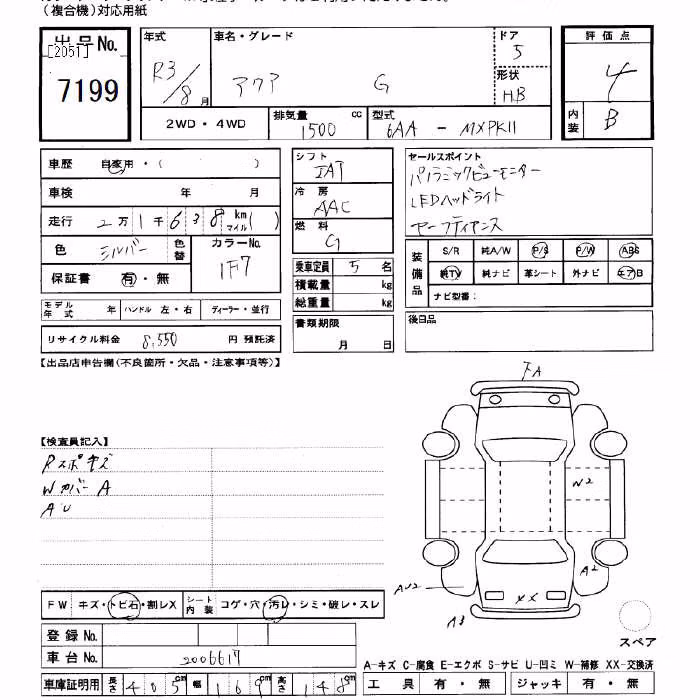 (複合機)対応用紙
出品No.
[2051]
7199
年式
R3/8月
車名・グレード
アクア G
ドア
5
形状
H.B
評価点
4
内装
B
2WD・4WD
排気量
1500 cc
型式
6AA - MXPK11
車歴 自家用・( )
車検 年 月
走行 2万1千638 km マイル( )
色 シルバー 色替
カラーNo.
1F7
保証書 有・無
モデル年式 年 ハンドル 左・右 ディーラー・並行
リサイクル料金 8,550 円 預託済
シフト
IAT
冷房
AAC
燃料
G
乗車定員 5 名
積載量 kg
総重量 kg
書類期限
月 日
セールスポイント
パノラミックビューモニター
LEDヘッドライト
セーフティセンス
装備品
S/R 純A/W P/S P/W ABS
純TV 純ナビ 革シート 外ナビ エアB
ナビ型番:
後日品
【出品店申告欄(不良箇所・欠品・注意事項等)】
【検査員記入】
Rスポキズ
WカバーA
AU
FA
W2
A2
AU2
XX
A3
スペア
FW キズ・トビ石・割レX シート内装 コゲ・穴・汚レ・シミ・破レ・スレ
登録No.
車台No. 2006617
車庫証明用 長さ 405cm 幅 169cm 高さ 148cm
A-キズ C-腐食 E-エクボ S-サビ U-凹ミ W-補修 XX-交換済
工具 有・無 ジャッキ 有・無